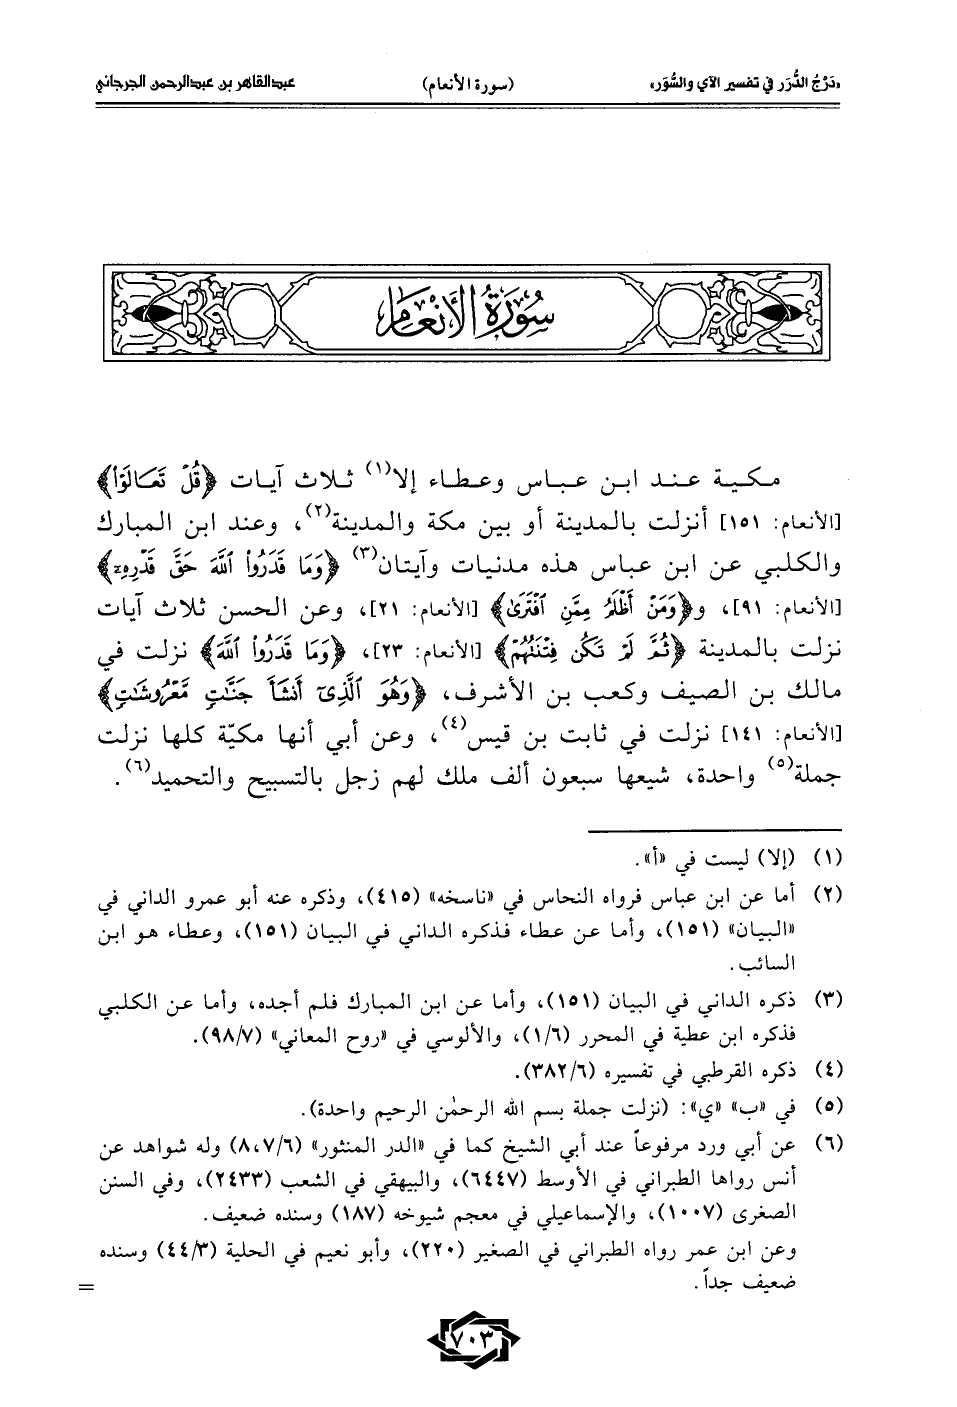 «دَرْجُ الدُّرَر في تفسير الآي والسُّوَر»
(سورة الأنعام)
عبدالقاهر بن عبدالرحمن الجرجاني
سُورَةُ الأَنْعَام
مكية عند ابن عباس وعطاء إلا(١) ثلاث آيات ﴿قُلْ تَعَالَوْا﴾
[الأنعام: ١٥١] أنزلت بالمدينة أو بين مكة والمدينة(٢)، وعند ابن المبارك
والكلبي عن ابن عباس هذه مدنيات وآيتان(٣) ﴿وَمَا قَدَرُوا۟ ٱللَّهَ حَقَّ قَدْرِهِۦ﴾
[الأنعام: ٩١]، و﴿وَمَنْ أَظْلَمُ مِمَّنِ ٱفْتَرَىٰ﴾ [الأنعام: ٢١]، وعن الحسن ثلاث آيات
نزلت بالمدينة ﴿ثُمَّ لَمْ تَكُن فِتْنَتُهُمْ﴾ [الأنعام: ٢٣]، ﴿وَمَا قَدَرُوا۟ ٱللَّهَ﴾ نزلت في
مالك بن الصيف وكعب بن الأشرف، ﴿وَهُوَ ٱلَّذِىٓ أَنشَأَ جَنَّـٰتٍ مَّعْرُوشَـٰتٍ﴾
[الأنعام: ١٤١] نزلت في ثابت بن قيس(٤)، وعن أبي أنها مكيّة كلها نزلت
جملة(٥) واحدة، شيعها سبعون ألف ملك لهم زجل بالتسبيح والتحميد(٦).
(١) (إلا) ليست في «أ».
(٢) أما عن ابن عباس فرواه النحاس في «ناسخه» (٤١٥)، وذكره عنه أبو عمرو الداني في
«البيان» (١٥١)، وأما عن عطاء فذكره الداني في البيان (١٥١)، وعطاء هو ابن
السائب.
(٣) ذكره الداني في البيان (١٥١)، وأما عن ابن المبارك فلم أجده، وأما عن الكلبي
فذكره ابن عطية في المحرر (١/٦)، والألوسي في «روح المعاني» (٩٨/٧).
(٤) ذكره القرطبي في تفسيره (٣٨٢/٦).
(٥) في «ب» «ي»: (نزلت جملة بسم الله الرحمٰن الرحيم واحدة).
(٦) عن أبي ورد مرفوعاً عند أبي الشيخ كما في «الدر المنثور» (٨،٧/٦) وله شواهد عن
أنس رواها الطبراني في الأوسط (٦٤٤٧)، والبيهقي في الشعب (٢٤٣٣)، وفي السنن
الصغرى (١٠٠٧)، والإسماعيلي في معجم شيوخه (١٨٧) وسنده ضعيف.
وعن ابن عمر رواه الطبراني في الصغير (٢٢٠)، وأبو نعيم في الحلية (٤٤/٣) وسنده
ضعيف جداً.
=
٧٠٣